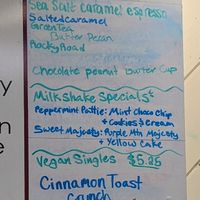 Sea Salt caramel espresso
Salted caramel
Green Tea
Butter Pecan
Rocky Road
Chocolate peanut Butter Cup
Milkshake Specials
Peppermint Pattie: Mint Choc Chip
+ Cookies & Cream
Sweet Majesty: Purple Mtn Majesty
+ Yellow Cake
Vegan Singles $5.25
Cinnamon Toast
Crunch
y
n
e